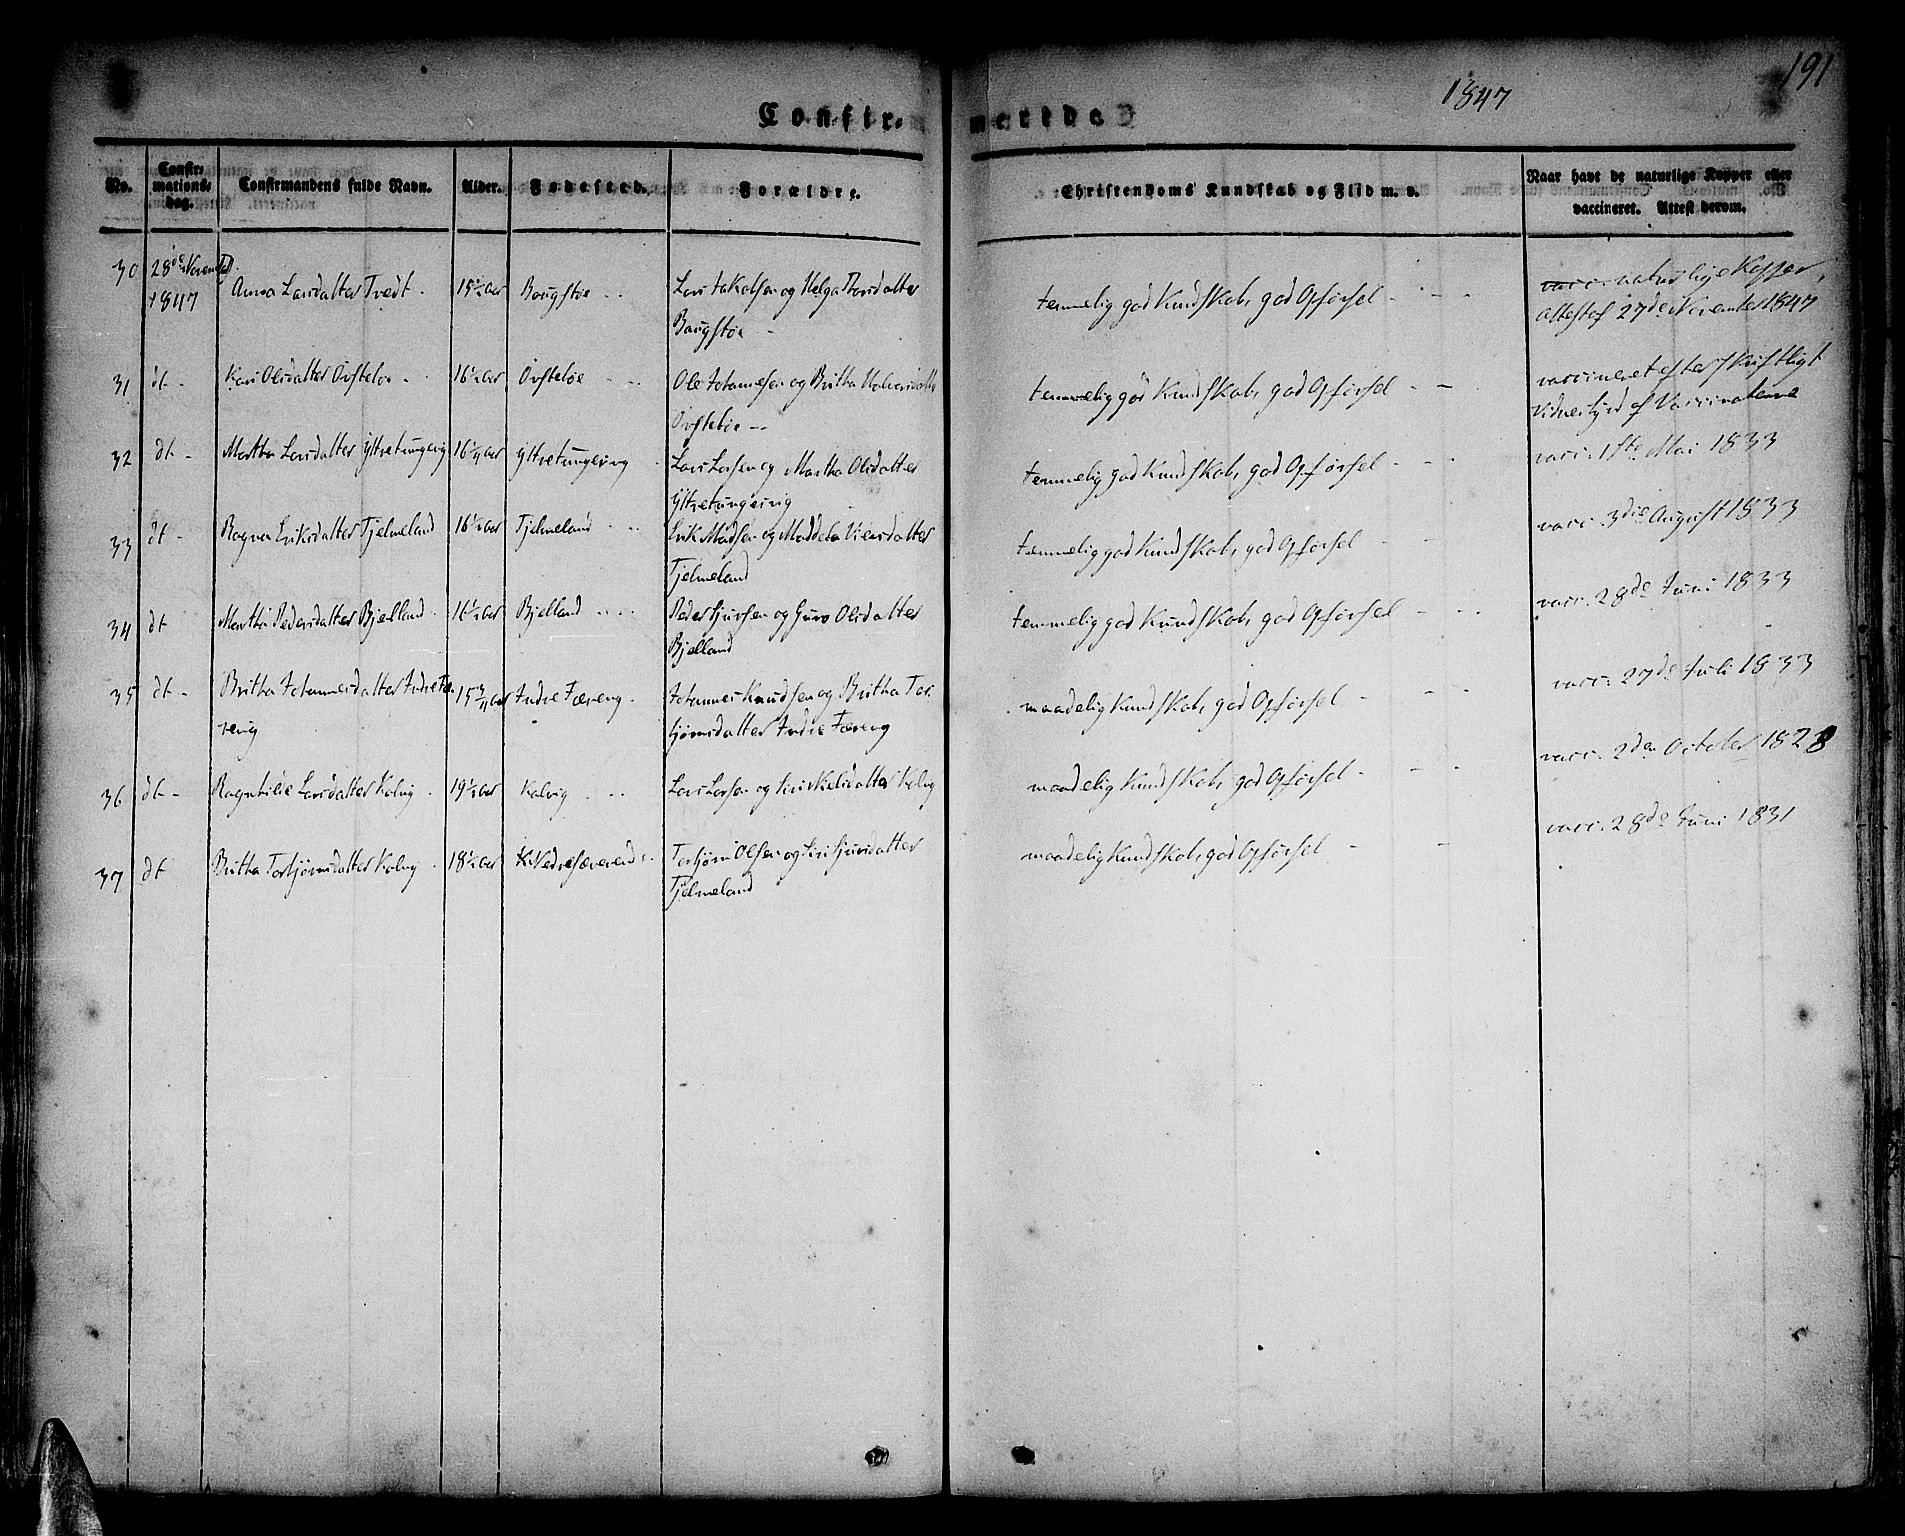 191
1847
Confir-
merede
No.
Confir-
mations-
dag.
Confirmandens fulde Navn.
Alder.
Fødested.
Forældre.
Christendoms Kundskab og Flid m. v.
Naar havt de naturlige Kopper eller
vaccineret. Attest derom.
30 28de Novem 1847 Anna Larsdatter Tvedt. 15½ Aar Bougstøe Lars Jakobsen og Helga Larsdatter
Bougstøe
temmelig god Kundskab, god Opførsel
naturlige Kopper,
Attest af 27de November 1847
31 dt Kari Olsdatter Øvstebøe 16½ Aar Øvstebøe Ole Johannesen og Britha
Øvstebøe
temmelig god Kundskab, god Opførsel
vaccineret efter skriftligt
Vidnesbyrd af Vaccinateure
32 dt Martha Larsdatter Yttretungesvig 16¼ Aar Yttretungesvig Lars Larsen og Martha Olsdatter
Yttretungesvig
temmelig god Kundskab, god Opførsel
vacc. 1ste Mai 1833
33 dt Ragna Eriksdatter Tjelmeland 16½ Aar Tjelmeland Erik Madsen og Maddela
Tjelmeland
temmelig god Kundskab, god Opførsel
vacc. 3die August 1833
34 dt Martha Pedersdatter Bjelland 16½ Aar Bjelland Peder Sjursen og Guro Olsdatter
Bjelland
temmelig god Kundskab, god Opførsel
vacc. 28de Juni 1833
35 dt Britha Johannesdatter Indre Fæ-
reng
15¾ Aar Indre Færeng. Johannes Knudsen og Britha Tor-
bjørnsdatter Indre Færeng
maadelig Kundskab, god Opførsel
vacc. 27de Juli 1833
36 dt Ragnhilde Larsdatter Kalvig 19½ Aar Kalvig Lars Larsen og Siri Nelsdatter Kalvig
maadelig Kundskab, god Opførsel
vacc. 2den October 1828
37 dt Britha Torbjørnsdatter Kalvig 18½ Aar Torbjørn Olsen og Siri Sjursdatter
Tjelmeland
maadelig Kundskab, god Opførsel
vacc. 28de Juni 1831